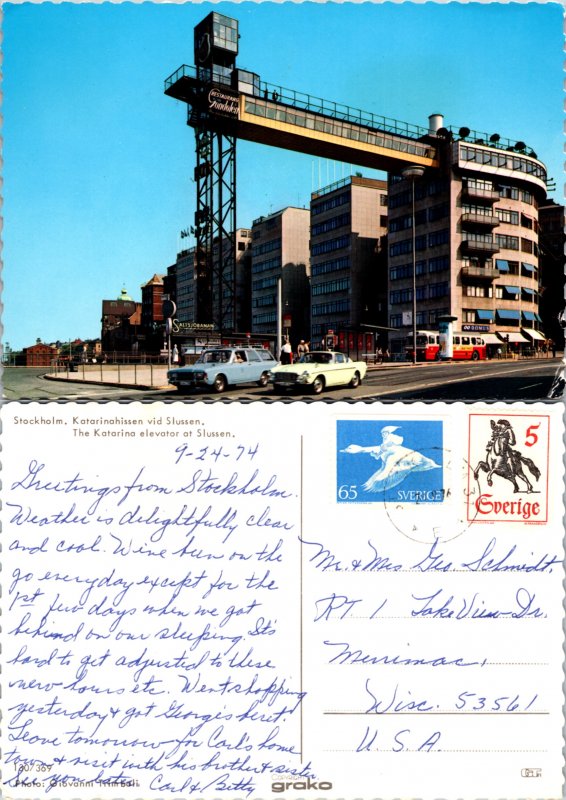 RESTAURANG
Gondolen
SALTSJÖBANAN
DOMUS
Stockholm. Katarinahissen vid Slussen.
The Katarina elevator at Slussen.
9-24-74
Greetings from Stockholm.
Weather is delightfully clear
and cool. We've been on the
go everyday except for the
1st few days when we got
behind on our sleeping. It's
hard to get adjusted to these
new hours etc. Went shopping
yesterday & got George's beret.
Leave tomorrow for Carl's home
town & visit with his brother & sister
See you later Carl & Betty
130/369
Photo: Giovanni Trimboli
grako
65 SVERIGE
5
Sverige
Mr. & Mrs Geo. Schmidt,
RT. 1 Lake View Dr.
Merrimac,
Wisc. 53561
U. S. A.